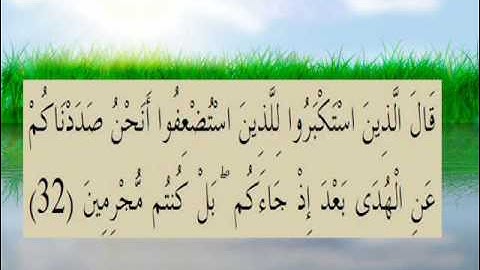 قَالَ الَّذِينَ اسْتَكْبَرُوا لِلَّذِينَ اسْتُضْعِفُوا أَنَحْنُ صَدَدْنَاكُمْ
عَنِ الْهُدَى بَعْدَ إِذْ جَاءَكُم ۖ بَلْ كُنتُم مُّجْرِمِينَ (32)